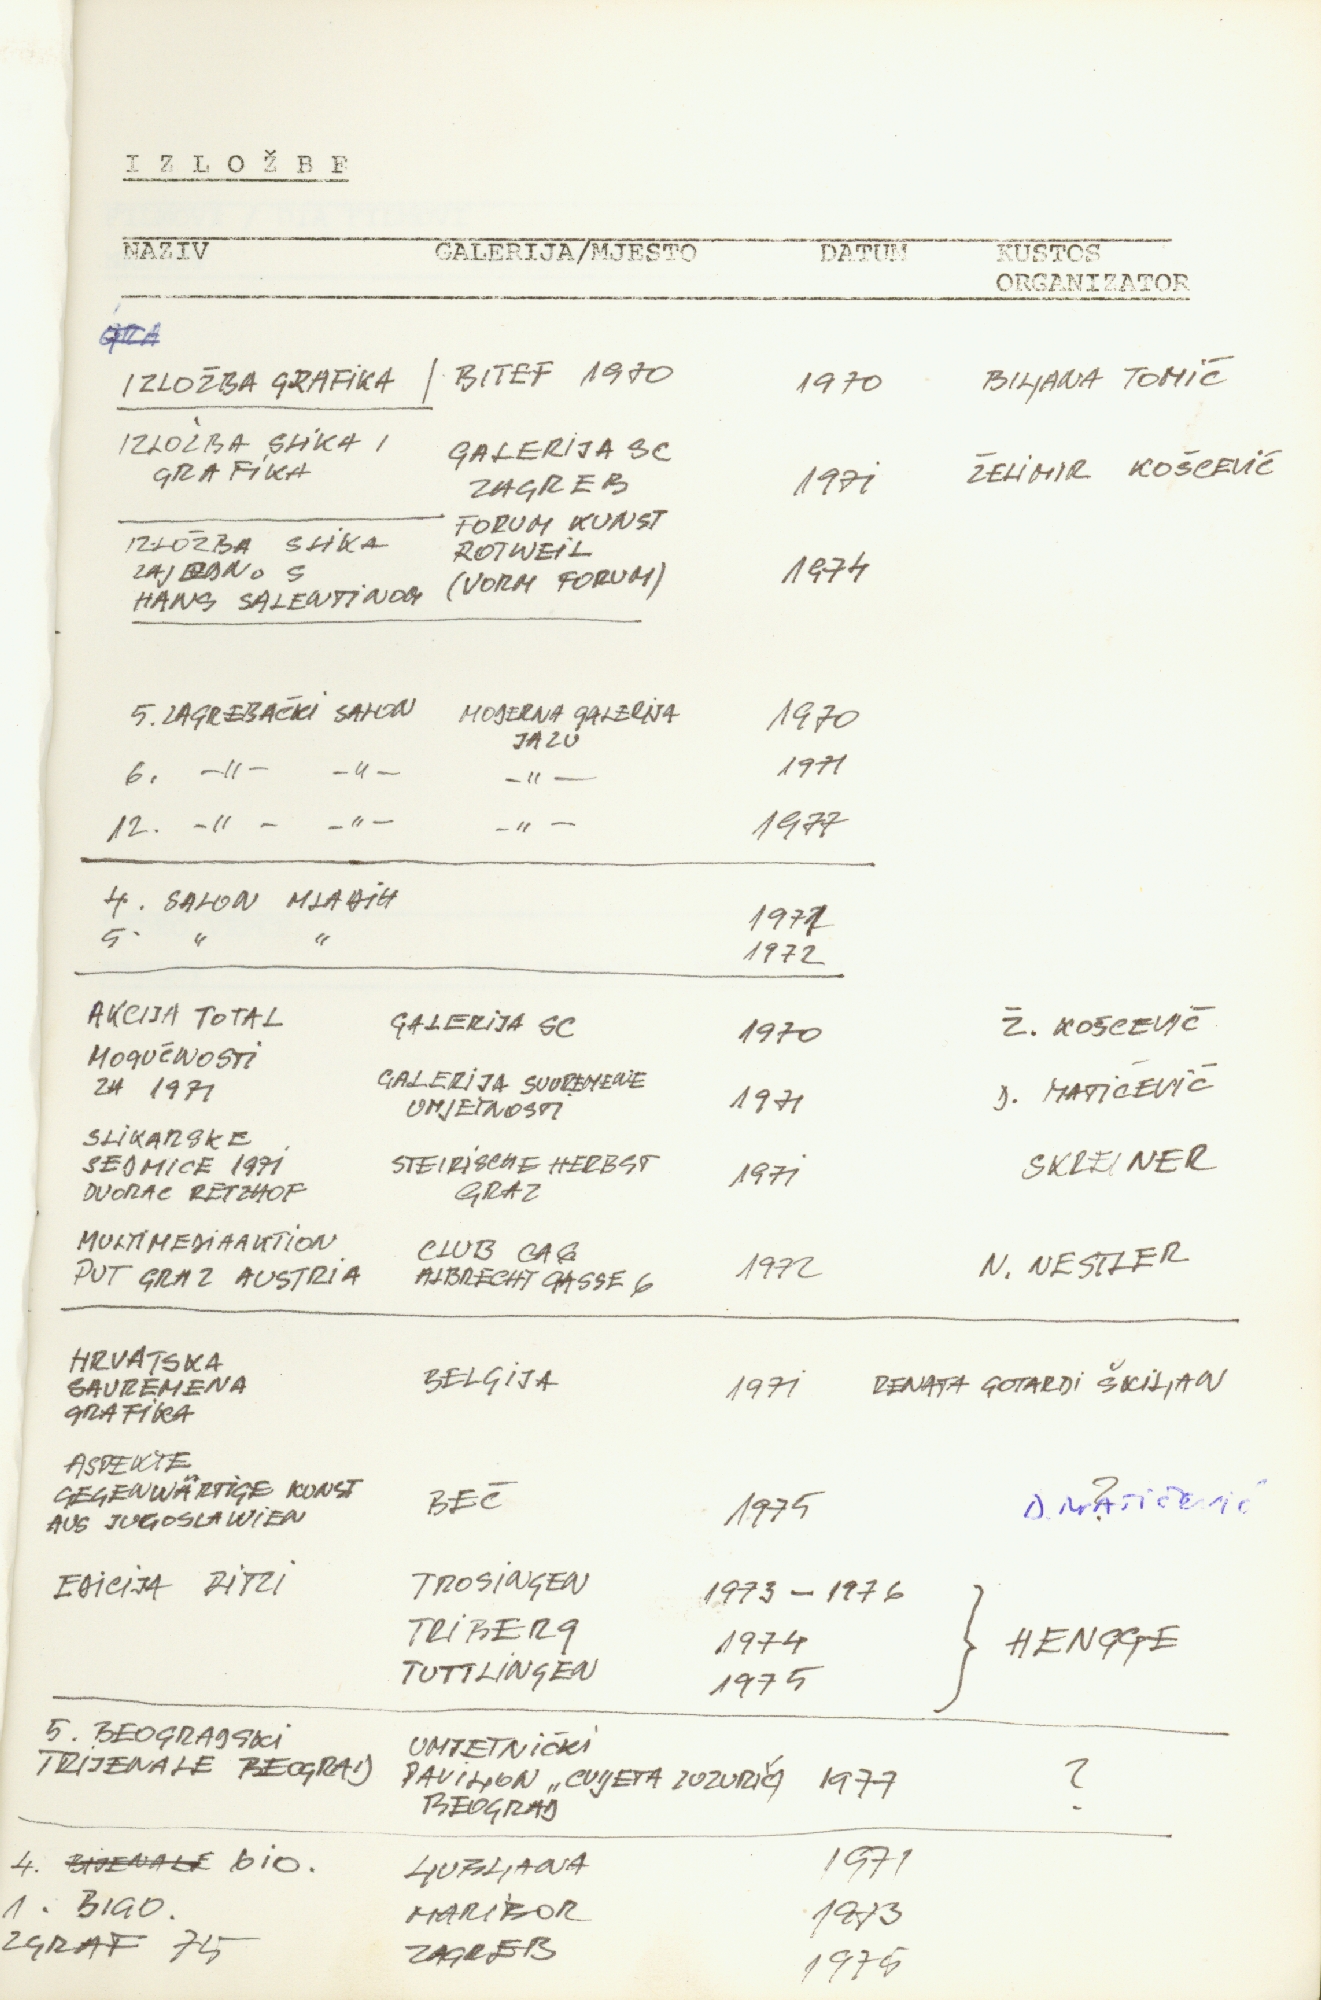 IZLOŽBE
NAZIV GALERIJA/MJESTO DATUM KUSTOS
ORGANIZATOR
GRA
IZLOŽBA GRAFIKA / BITEF 1970 1970 BILJANA TOMIĆ
IZLOŽBA SLIKA I
GRAFIKA
GALERIJA SC
ZAGREB
1971 ŽELIMIR KOŠČEVIĆ
IZLOŽBA SLIKA
ZAJEDNO S
HANS SALENTINOM
FORUM KUNST
ROTWEIL
(VORM FORUM)
1974
5. ZAGREBAČKI SALON MODERNA GALERIJA
JAZU
1970
6. -"- -"- -"- 1971
12. -"- -"- -"- 1977
4. SALON MLADIH 1971
5. " " 1972
AKCIJA TOTAL GALERIJA SC 1970 Ž. KOŠČEVIĆ
MOGUĆNOSTI
ZA 1971
GALERIJA SUVREMENE
UMJETNOSTI
1971 D. MATIČEVIĆ
SLIKARSKE
SEDMICE 1971
DVORAC RETZHOF
STEIRISCHE HERBST
GRAZ
1971 SKREINER
MULTIMEDIAAKTION
PUT GRAZ AUSTRIA
CLUB
ALBRECHTGASSE 6
1972 N. NESTLER
HRVATSKA
SAVREMENA
GRAFIKA
BELGIJA 1971 RENATA GOTARDI ŠKILJAN
ASPEKTE
GEGENWÄRTIGE KUNST
AUS JUGOSLAWIEN
BEČ 1975 ?
D. MATIČEVIĆ
EDICIJA TROSINGEN 1973 - 1976
TRIBERG 1974 HENGGE
TUTTLINGEN 1975
5. BEOGRADSKI
TRIJENALE BEOGRAD
UMJETNIČKI
PAVILJON „CVIJETA ZUZORIĆ
BEOGRAD
1977 ?
4. BIJENALE bio. LJUBLJANA 1971
1. BIGO. MARIBOR 1973
ZGRAF 75 ZAGREB 1975